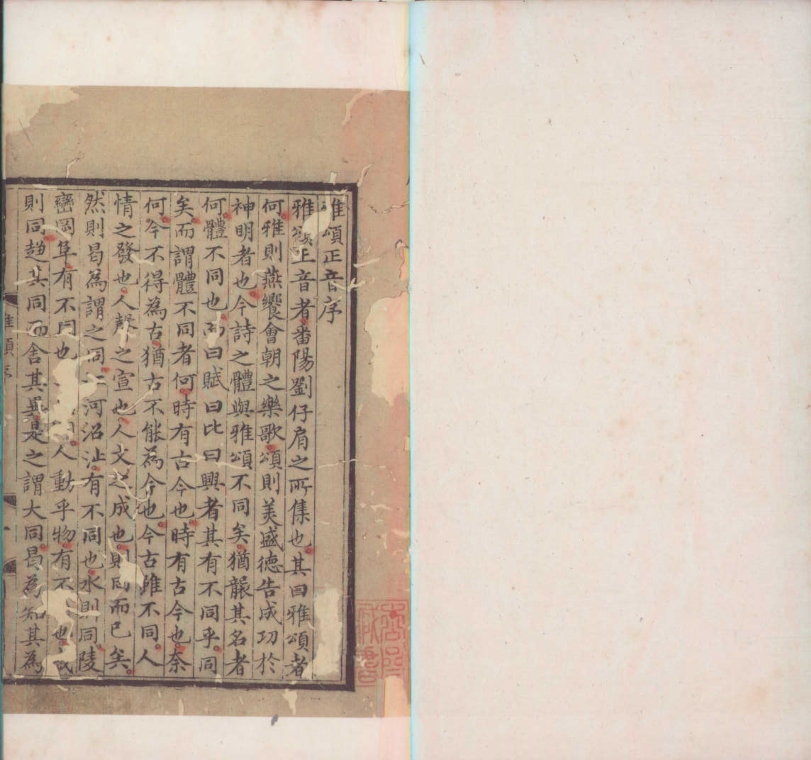 雅頌正音序
雅頌正音者番陽劉仔肩之所集也其曰雅頌者
何雅則燕饗會朝之樂歌頌則美盛德告成功於
神明者也今詩之體與雅頌不同矣猶襲其名者
何體不同也而曰賦曰比曰興者其有不同乎同
矣而謂體不同者何時有古今也時有古今也奈
何今不得為古猶古不能為今也今古雖不同人
情之發也人聲之宣也人文之成也則同而已矣
然則曷為謂之同江河沼沚有不同也水則同陵
巒岡阜有不同也 人動乎物有不 也
則同趨其同而舍其異是之謂大同曷為知其為
雅頌序